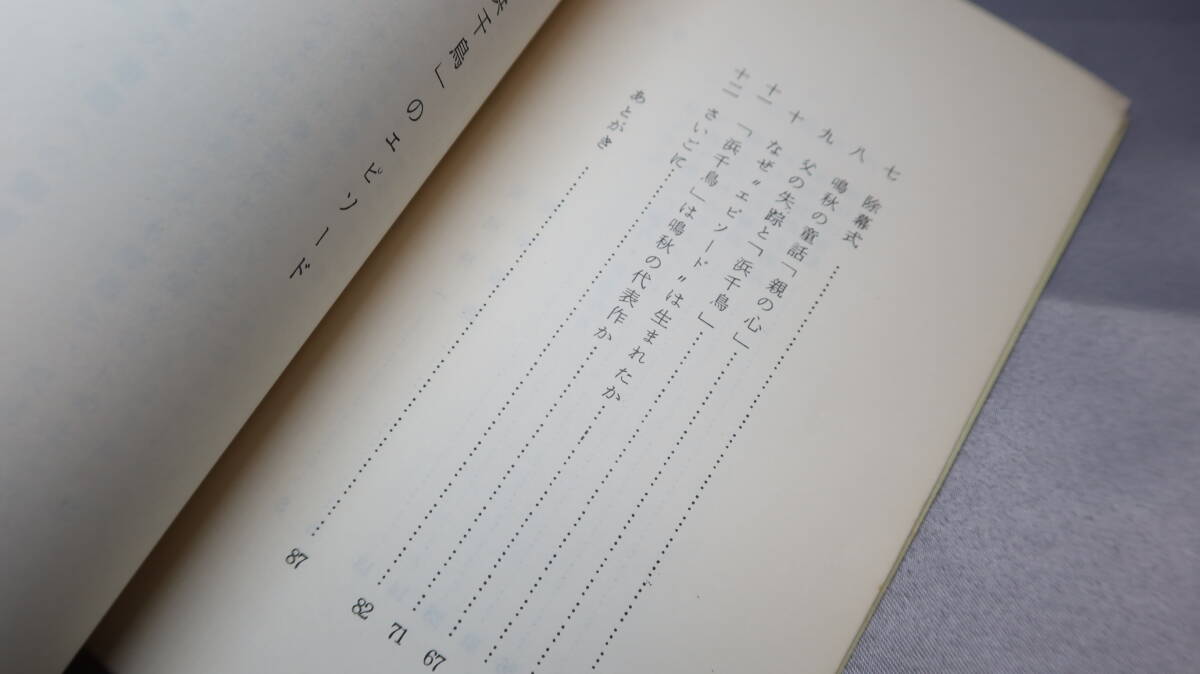 七 除幕式……
八 鳴秋の童話「親の心」……
九 父の失踪と「浜千鳥」……
十 なぜ〝エピソード〟は生まれたか……67
十一 「浜千鳥」は鳴秋の代表作か……71
十二 さいごに……82
あとがき……87
千鳥」のエピソード